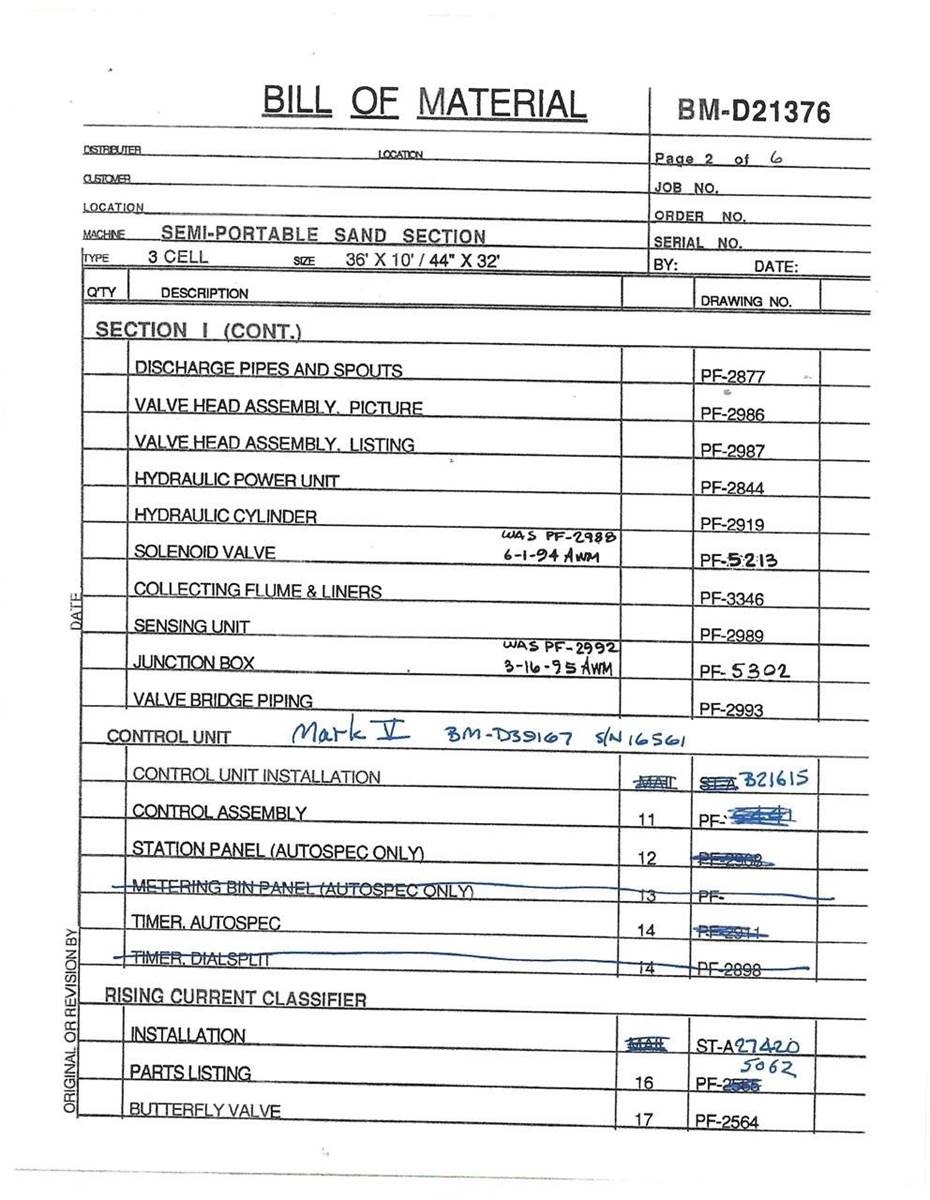 BILL OF MATERIAL
BM-D21376
DISTRIBUTER LOCATION
Page 2 of 6
CUSTOMER
JOB NO.
LOCATION
ORDER NO.
MACHINE SEMI-PORTABLE SAND SECTION
SERIAL NO.
TYPE 3 CELL SIZE 36' X 10' / 44" X 32'
BY: DATE:
Q'TY DESCRIPTION DRAWING NO.
SECTION I (CONT.)
DISCHARGE PIPES AND SPOUTS PF-2877
VALVE HEAD ASSEMBLY, PICTURE PF-2986
VALVE HEAD ASSEMBLY, LISTING PF-2987
HYDRAULIC POWER UNIT PF-2844
HYDRAULIC CYLINDER PF-2919
WAS PF-2988
SOLENOID VALVE 6-1-94 AWM PF-5213
COLLECTING FLUME & LINERS PF-3346
SENSING UNIT PF-2989
WAS PF-2992
JUNCTION BOX 3-16-95 AWM PF-5302
VALVE BRIDGE PIPING PF-2993
CONTROL UNIT Mark V BM-D39167 S/N 16561
CONTROL UNIT INSTALLATION MAIL ST-A B21615
CONTROL ASSEMBLY 11 PF-5441
STATION PANEL (AUTOSPEC ONLY) 12 PF-2908
METERING BIN PANEL (AUTOSPEC ONLY) 13 PF-
TIMER, AUTOSPEC 14 PF-2911
TIMER, DIALSPLIT 14 PF-2898
RISING CURRENT CLASSIFIER
INSTALLATION MAIL ST-A27420
5062
PARTS LISTING 16 PF-2565
BUTTERFLY VALVE 17 PF-2564
DATE
ORIGINAL OR REVISION BY